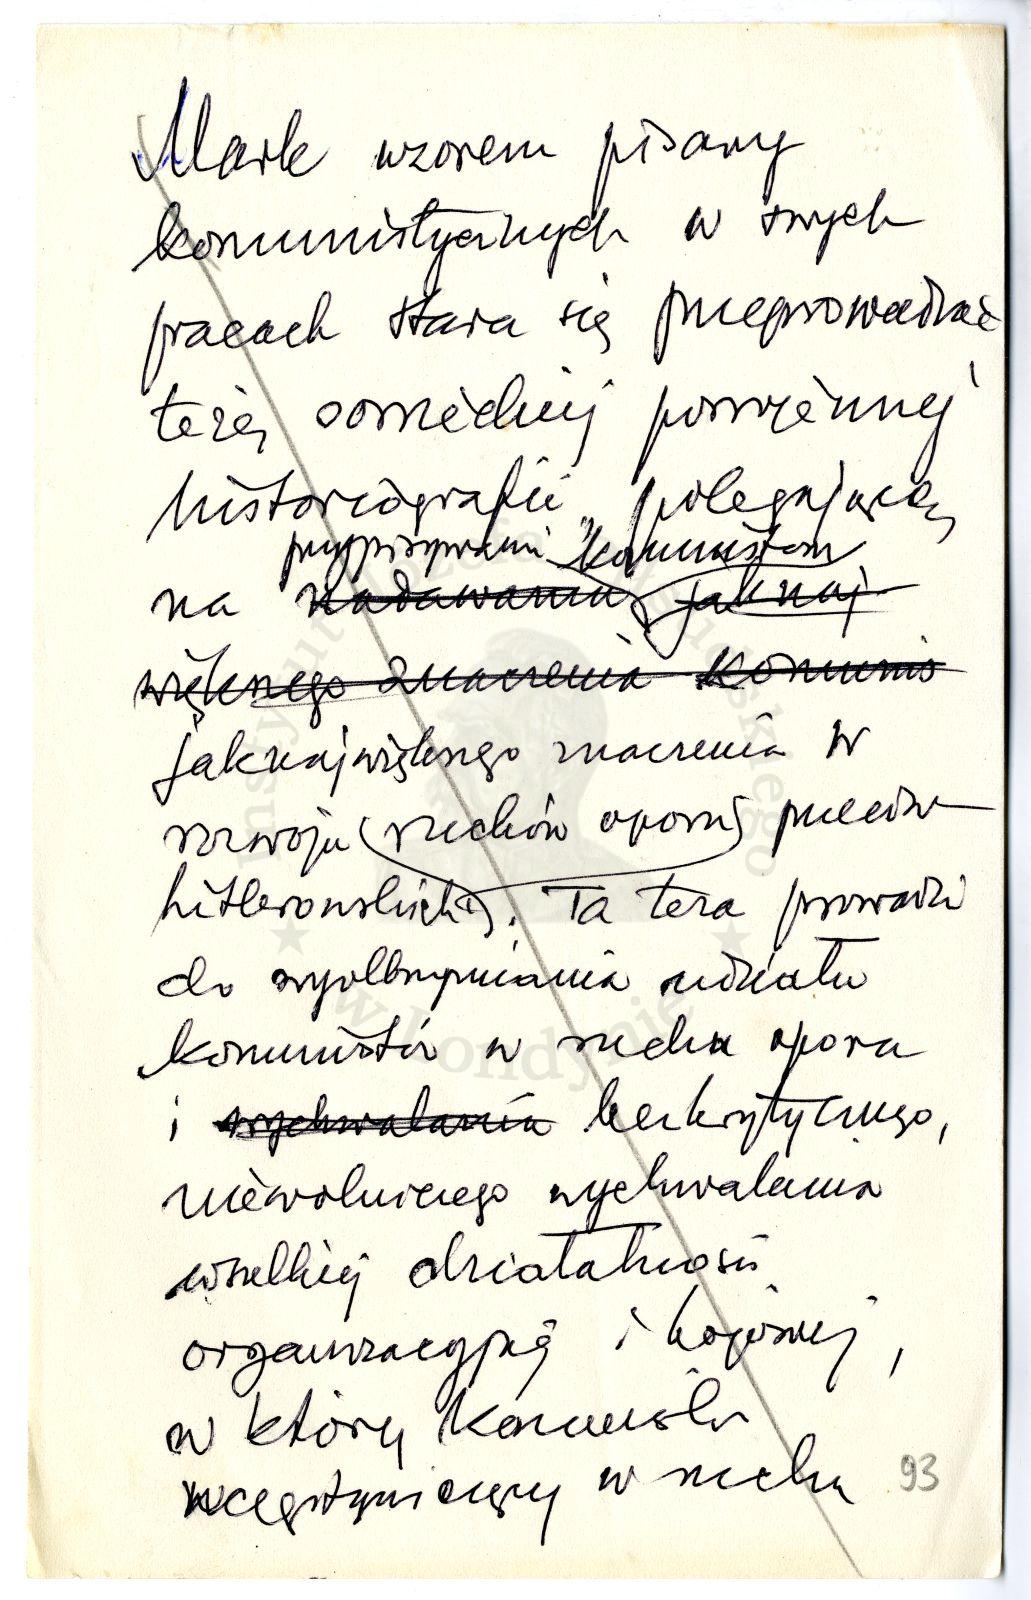 Mark wzorem pisarzy
komunistycznych w swych
pracach stara się przeprowadzać
tezę sowieckiej powojennej
historiografii, polegającą
przypisywaniu komunistom
na nadawaniu jaknaj
większego znaczenia komunis
jaknajwiększego znaczenia w
rozwoju ruchów oporu przeciw
hitlerowskich. Ta teza prowadzi
do wyolbrzymiania udziału
komunistów w ruchu oporu
i wychwalania bezkrytycznego,
niewolniczego wychwalania
wszelkiej działalności
organizacyjnej i bojowej,
w której komuniści
uczestniczący w ruchu
93
Instytut Józefa Piłsudskiego
w Londynie